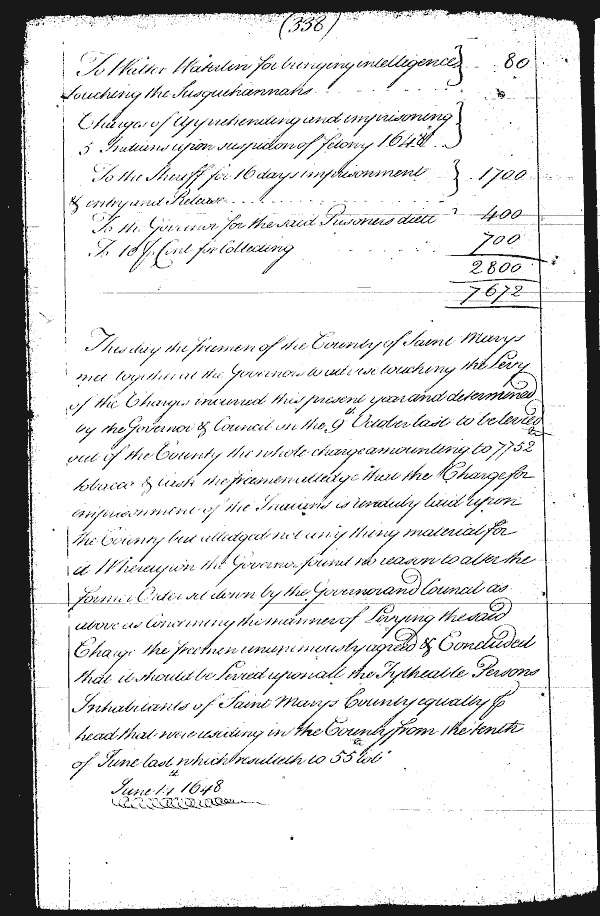 (338)
To Walter Waterlin for bringing intelligence } 80
touching the Susquehannahs
Charges of Apprehending and imprisoning }
5 Indians upon suspicion of felony 1648
To the Sheriff for 16 days imprisonment } 1700
& entry and Release
To the Governor for the said Prisoners diett 400
To 10 p Cent for Collecting 700
2800
7672
This day the freemen of the County of Saint Marys
met together at the Governors to advise touching the Levy
of the Charges incurred this present year and determined
by the Governor & Council on the 9th October last to be levied
out of the County the whole charge amounting to 7752
tobacco & Cask the freemen alledge that the Charge for
imprisonment of the Indians is unduly laid upon
the County but alledged not any thing material for
it Whereupon the Governor found no reason to alter the
former Order set down by the Governor and Council as
above as Concerning the manner of Levying the said
Charge the freemen unanimously agreed & Concluded
that it should be Levied upon all the Tytheable Persons
Inhabitants of Saint Marys County equally p
head that were residing in the County from the tenth
of June last which resulteth to 55 lb
June 14th 1648